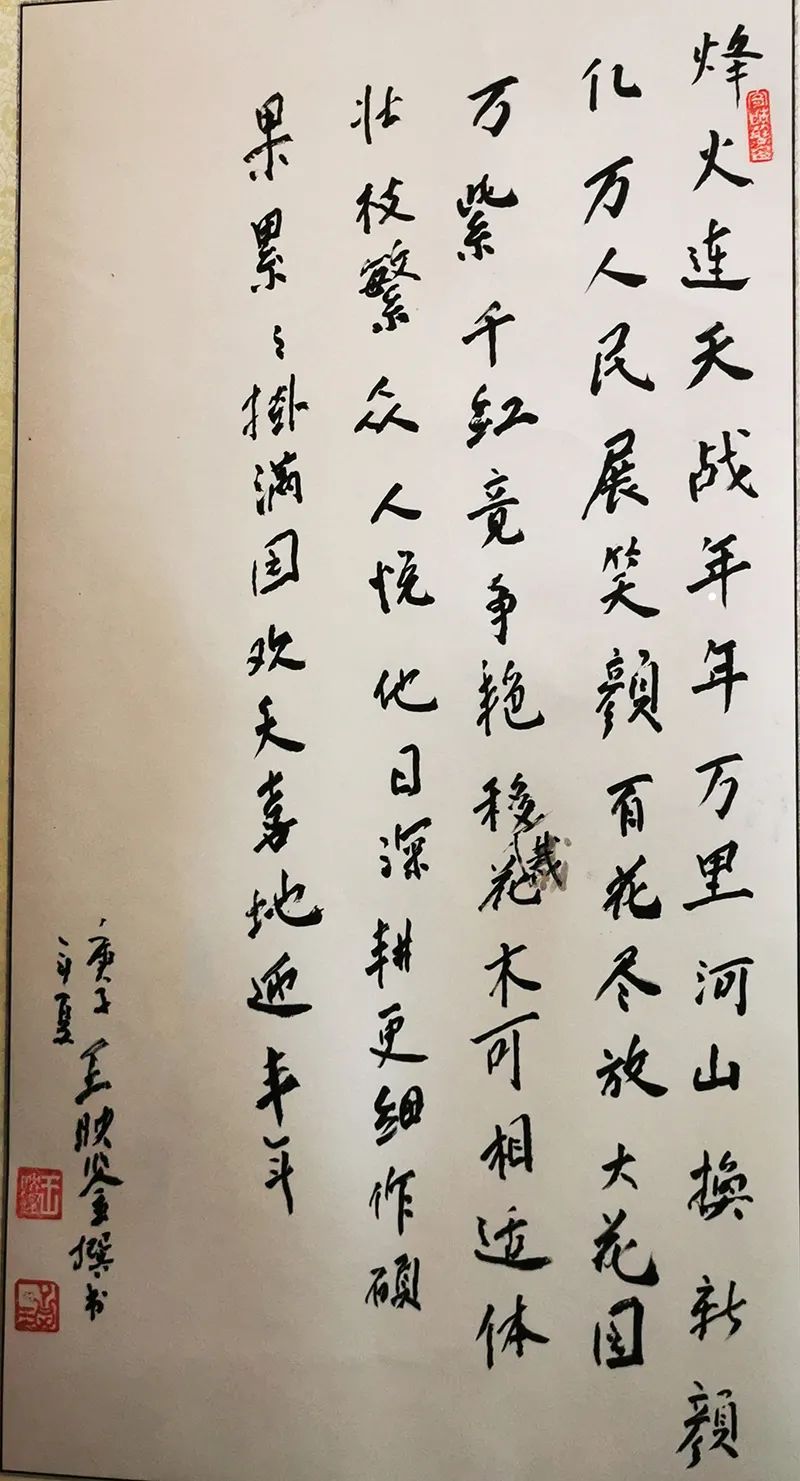 烽火连天战年年万里河山换新颜
亿万人民展笑颜百花尽放大花园
万紫千红竟争艳移花木可相适体
栽
壮枝繁众人悦他日深耕更细作硕
果累々掛满园欢天喜地迎丰年
庚子
年夏
王映鉴撰书